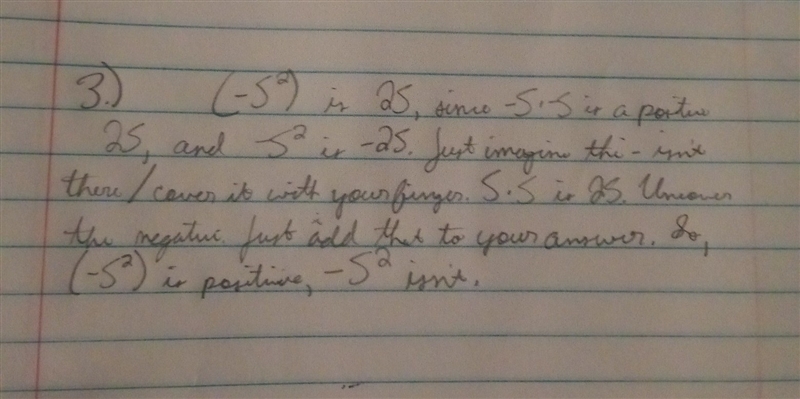 3.) (-5²) is 25, since -5·-5 is a positive
25, and -5² is -25. Just imagine the - isn't
there/cover it with your finger. 5·5 is 25. Uncover
the negative. Just add that to your answer. So,
(-5²) is positive, -5² isn't.